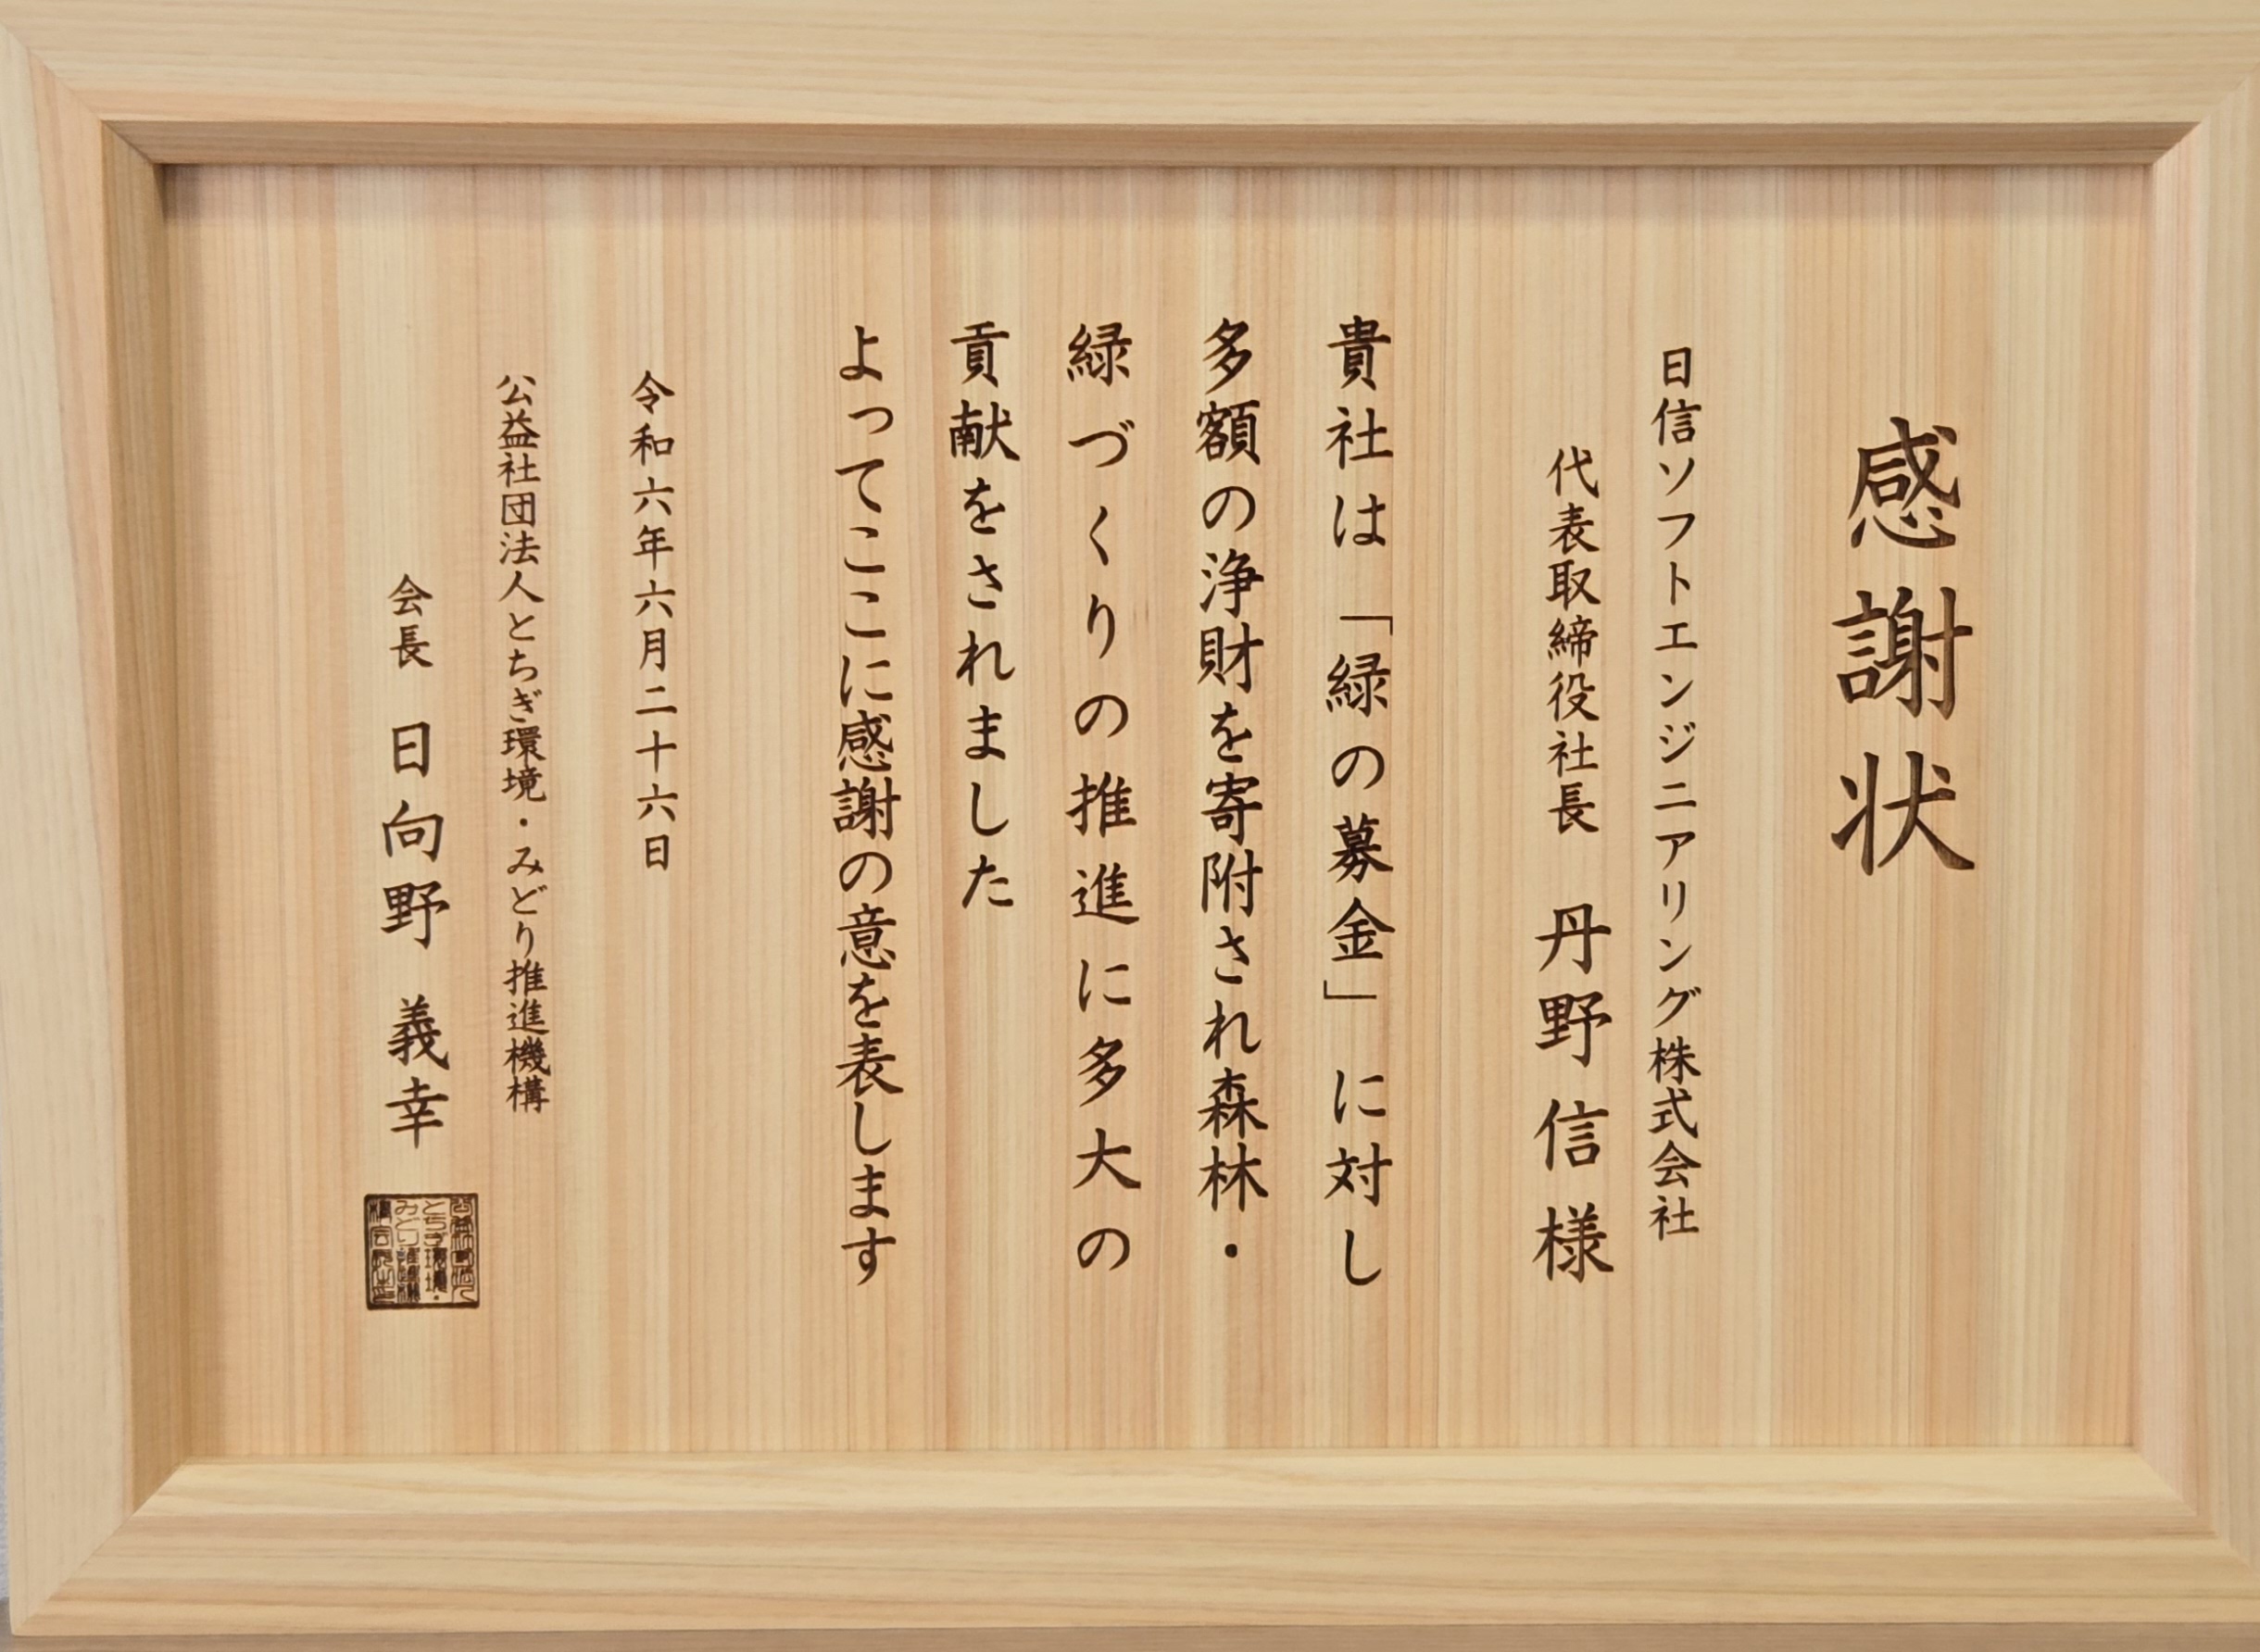 感謝状
日信ソフトエンジニアリング株式会社
代表取締役社長 丹野信様
貴社は「緑の募金」に対し
多額の浄財を寄附され森林・
緑づくりの推進に多大の
貢献をされました
よってここに感謝の意を表します
令和六年六月二十六日
公益社団法人とちぎ環境・みどり推進機構
会長 日向野 義幸